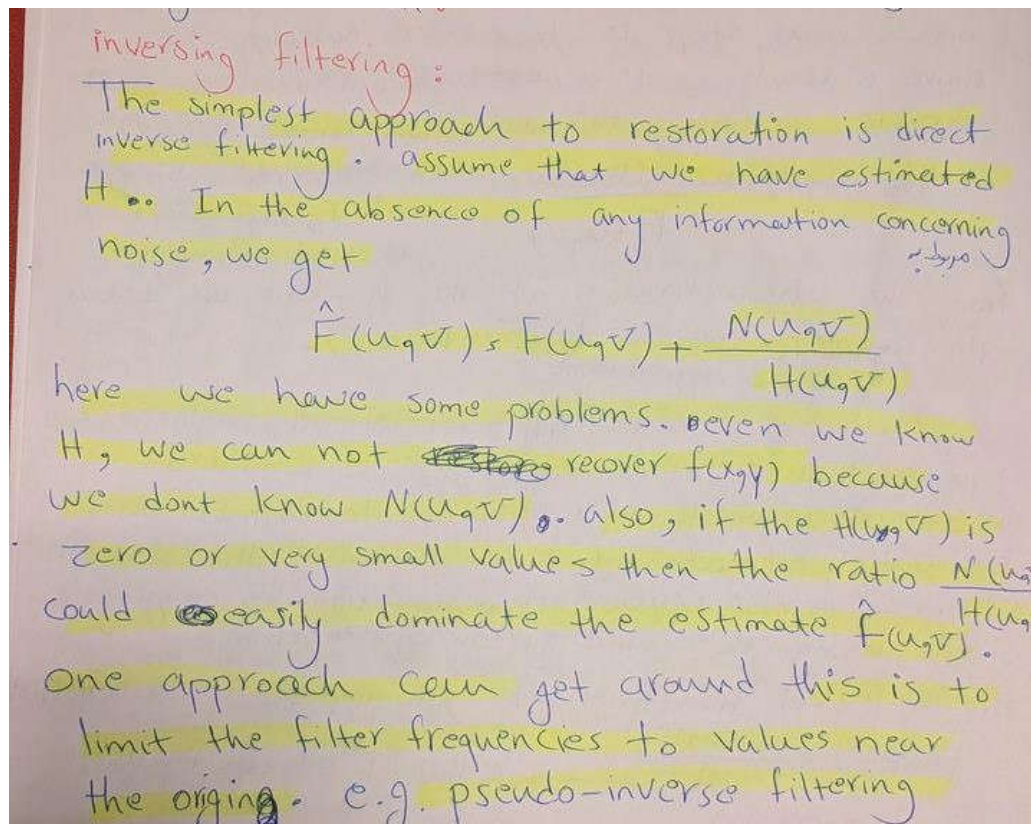 inversing filtering:
The simplest approach to restoration is direct
inverse filtering. assume that we have estimated
H.. In the absence of any information concerning
مربوط به
noise, we get
F̂(u,v) = F(u,v) + N(u,v)/H(u,v)
here we have some problems. even we know
H, we can not recover f(x,y) because
we dont know N(u,v). also, if the H(u,v) is
zero or very small values then the ratio N(u,/H(u,
could easily dominate the estimate F̂(u,v).
One approach can get around this is to
limit the filter frequencies to values near
the origin. e.g. pseudo-inverse filtering